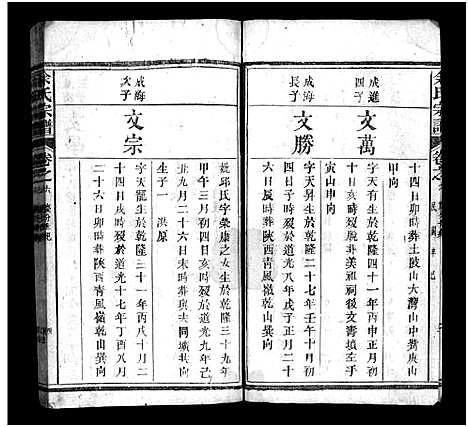 十四日卯時葬土陂山大灣山中癸庚山
甲向
成進
四子
文萬
字天有生於乾隆四十一年丙申正月十
十日亥時歿葬美祖祠後文萬居左坐
寅山申向
成海
長子
文勝
字天昇生於乾隆二十七年壬午十月
四日子時歿於道光八年戊子正月二十
日戌時葬陝西青風嶺乾山巽向
余氏宗譜
卷之六
成海
次子
文宗
姚邱氏字榮康之女生於乾隆三十九年
甲午三月初四日亥時歿於道光十八年
九月二十六日未時葬與夫同城
生子一 洪原
字天龍生於乾隆三十一年丙戌十月二
十四日戌時歿於道光十七年丁酉八月
二十六日辰時葬陝西青風嶺乾山巽向
余氏宗譜
卷之